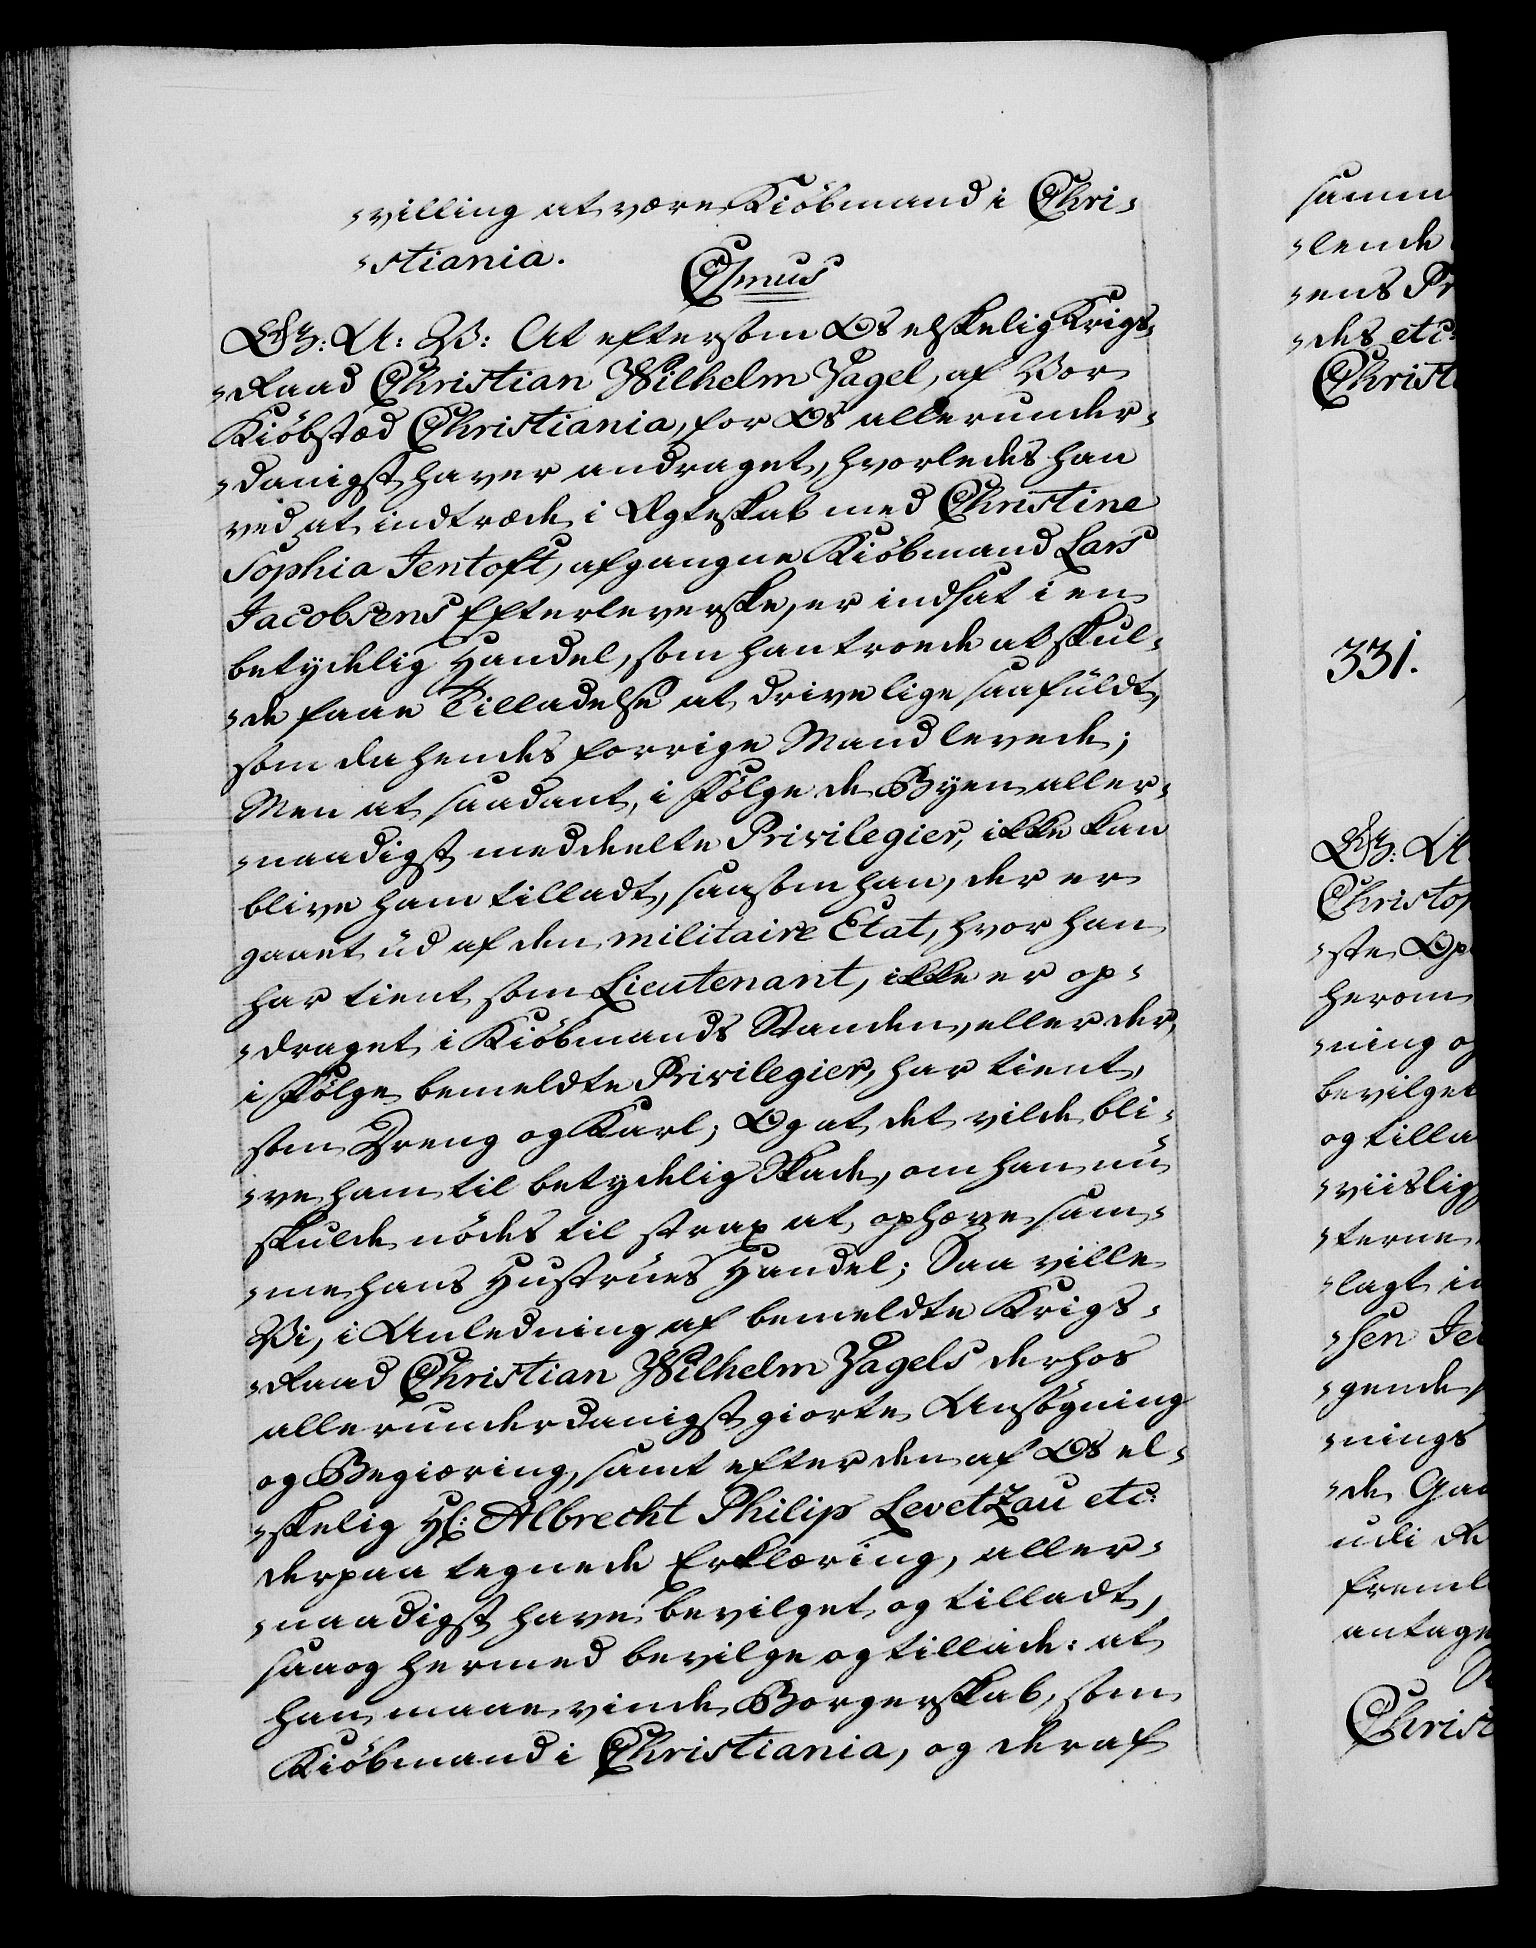 -villing at være Kiöbmand i Chri-
-stiania.
Csmus
G: A: V: At eftersom Os elskelig Krigs-
-Raad Christian Wilhelm Zagel, af Vor
Kiöbstæd Christiania, for Os allerunder-
-danigst haver andraget, hvorledes han
ved at indtræde i Ægteskab med Christine
Sophia Jentoft, afgangne Kiöbmand Lars
Jacobsens Efterleverske, er indsat i en
betydelig Handel, som han troede at skul-
-de faae Tilladelse at drive lige saa fuldt,
som da hendes forrige Mand levede;
Men at saadant, i Fölge de Byen aller-
-naadigst meddeelte Privilegier, ikke kan
blive ham tilladt, saasom han, der er
gaaet ud af den militaire Etat, hvor han
har tient som Lieutenant, ikke er op-
-draget i Kiöbmands Standen, eller der,
i Fölge bemeldte Privilegier, har tient,
som Dreng og Karl; Og at det vilde bli-
-ve ham til betydelig Skade, om han nu
skulde nödes til strax at ophæve sam-
-me hans Hustrues Handel; Saa ville
Vi, i Anledning af bemeldte Krigs-
-Raad Christian Wilhelm Zagels derhos
allerunderdanigst giorte Ansögning
og Begiæring, samt efter den af Os el-
-skelig Hr: Albrecht Philip Levetzau etc:
derpaa tegnede Erklæring, aller-
-naadigst have bevilget og tilladt,
saa og hermed bevilge og tillade: at
han maae vinde Borgerskab, som
Kiöbmand i Christiania, og deraf
samm
-lende
-ens Pr
-des etc:
Christi
331.
G: A:
Christop
-ste Op
herom
-ning og
bevilget
og tilla
-viislig
-terne
-lagt in
-sen Je
-gende
-nings
-de Gaa
udi de
freml
antage
Christ